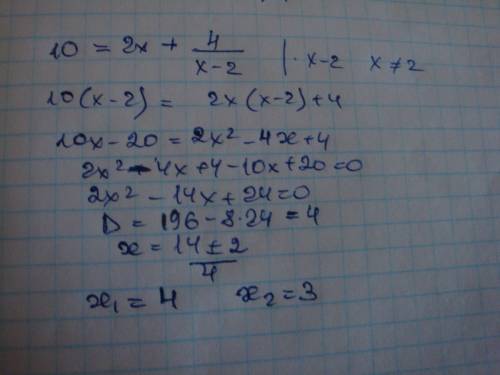 10 = 2x + 4/(x-2) | · x-2 x ≠ 2
10(x-2) = 2x(x-2)+4
10x-20 = 2x² - 4x+4
2x² - 4x+4-10x+20=0
2x² - 14x+24=0
D = 196-8·24 = 4
x = (14 ± 2)/4
x₁ = 4 x₂ = 3